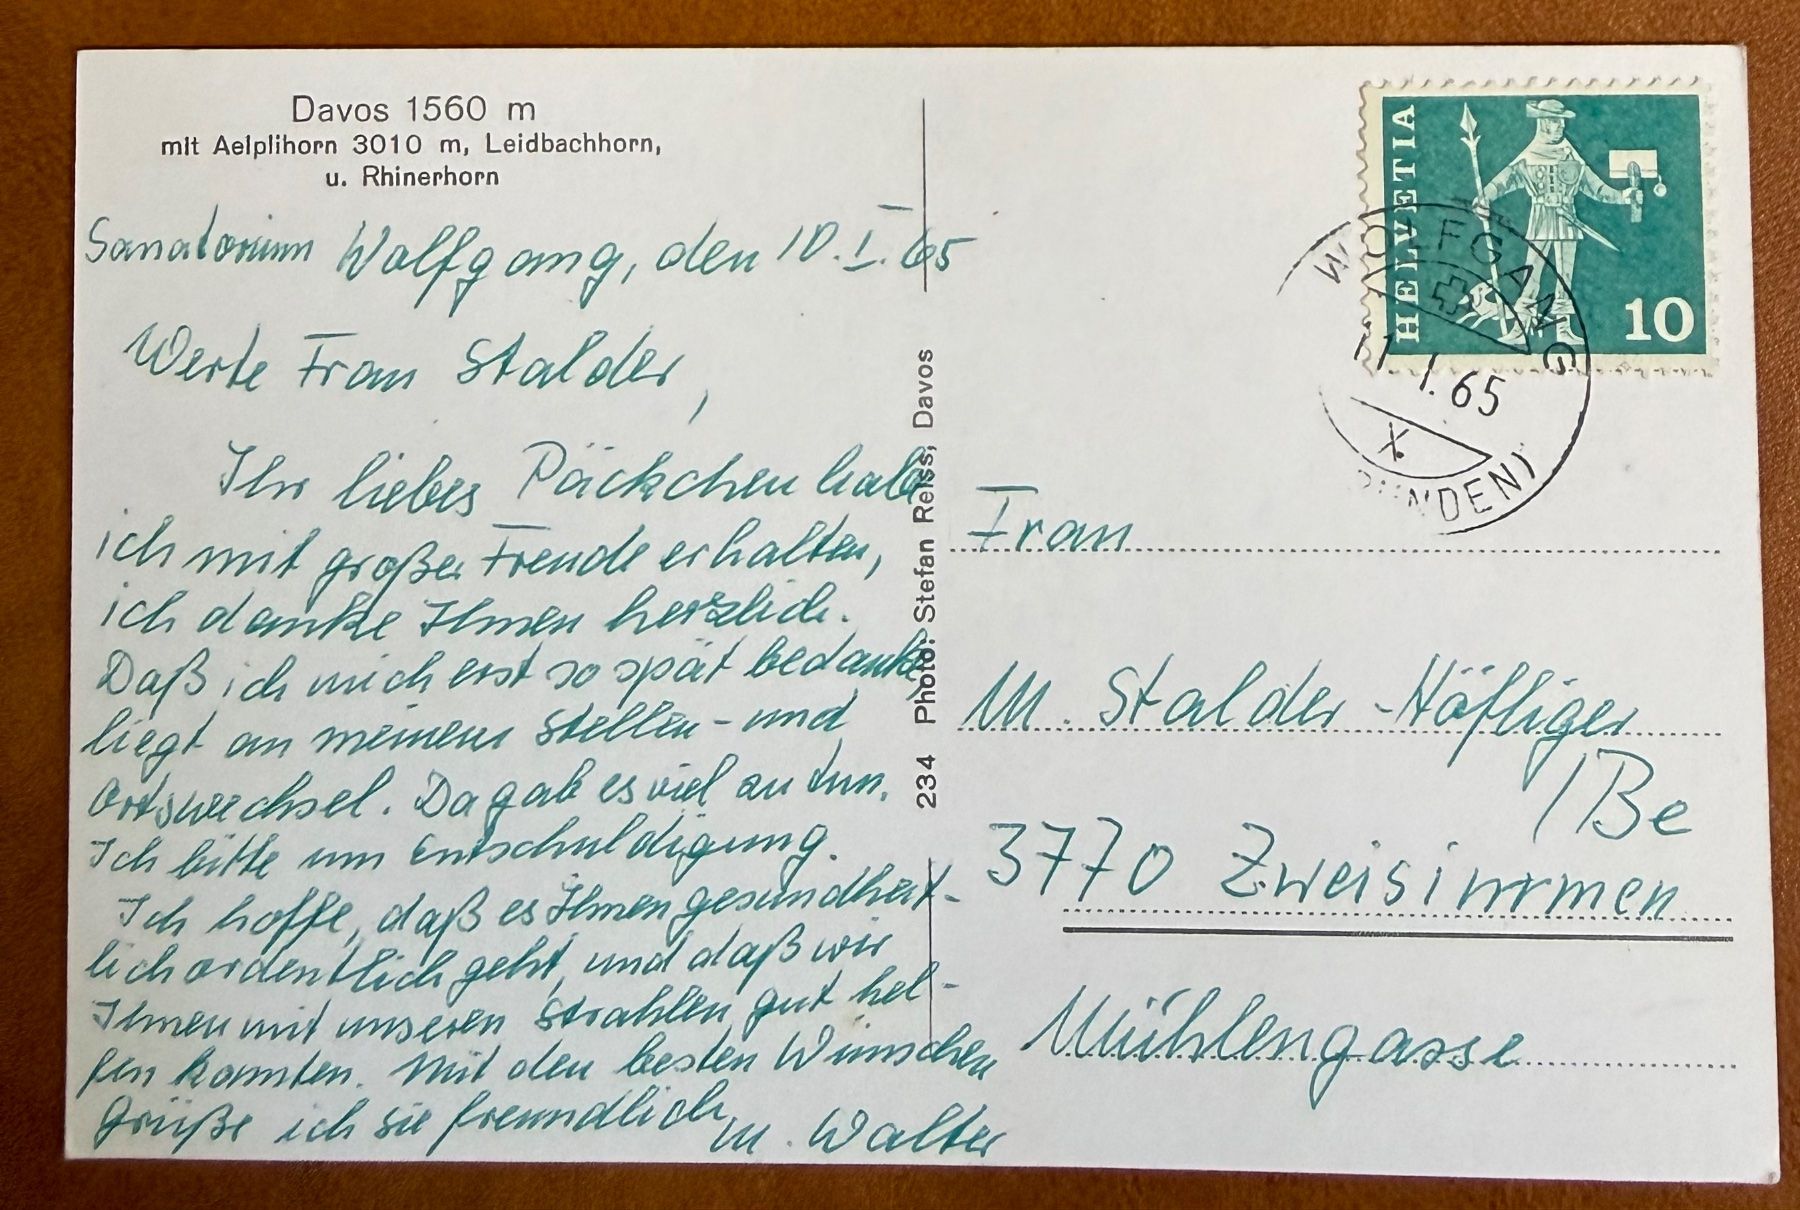 Davos 1560 m
mit Aelplihorn 3010 m, Leidbachhorn,
u. Rhinerhorn
Sanatorium Wolfgang, den 10. I. 65
Werte Frau Stalder,
Ihr liebes Päckchen habe
ich mit großer Freude erhalten,
ich danke Ihnen herzlich.
Daß ich mich erst so spät bedanke
liegt an meinem Stellen- und
Ortswechsel. Da gab es viel zu tun.
Ich bitte um Entschuldigung.
Ich hoffe, daß es Ihnen gesundheit-
lich ordentlich geht, und daß wir
Ihnen mit unseren Strahlen gut hel-
fen konnten. Mit den besten Wünschen
grüße ich sie freundlich
M. Walter
234 Photo: Stefan Reiss, Davos
HELVETIA
10
WOLFGANG
1.65
X.
Frau
M. Stalder-Häfliger
/Be
3770 Zweisimmen
Mühlengasse